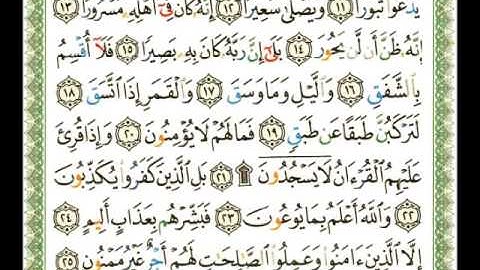 يَدْعُوا۟ ثُبُورًا ١١ وَيَصْلَىٰ سَعِيرًا ١٢ إِنَّهُۥ كَانَ فِىٓ أَهْلِهِۦ مَسْرُورًا ١٣
إِنَّهُۥ ظَنَّ أَن لَّن يَحُورَ ١٤ بَلَىٰٓ إِنَّ رَبَّهُۥ كَانَ بِهِۦ بَصِيرًا ١٥ فَلَآ أُقْسِمُ
بِٱلشَّفَقِ ١٦ وَٱلَّيْلِ وَمَا وَسَقَ ١٧ وَٱلْقَمَرِ إِذَا ٱتَّسَقَ ١٨
لَتَرْكَبُنَّ طَبَقًا عَن طَبَقٍ ١٩ فَمَا لَهُمْ لَا يُؤْمِنُونَ ٢٠ وَإِذَا قُرِئَ
عَلَيْهِمُ ٱلْقُرْءَانُ لَا يَسْجُدُونَ ۩ ٢١ بَلِ ٱلَّذِينَ كَفَرُوا۟ يُكَذِّبُونَ
٢٢ وَٱللَّهُ أَعْلَمُ بِمَا يُوعُونَ ٢٣ فَبَشِّرْهُم بِعَذَابٍ أَلِيمٍ ٢٤
إِلَّا ٱلَّذِينَ ءَامَنُوا۟ وَعَمِلُوا۟ ٱلصَّٰلِحَٰتِ لَهُمْ أَجْرٌ غَيْرُ مَمْنُونٍۭ ٢٥